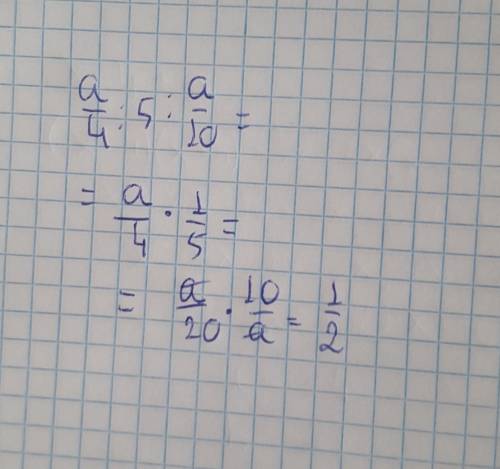 a/4 : 5 : a/10 =
= a/4 · 1/5 =
= a/20 · 10/a = 1/2